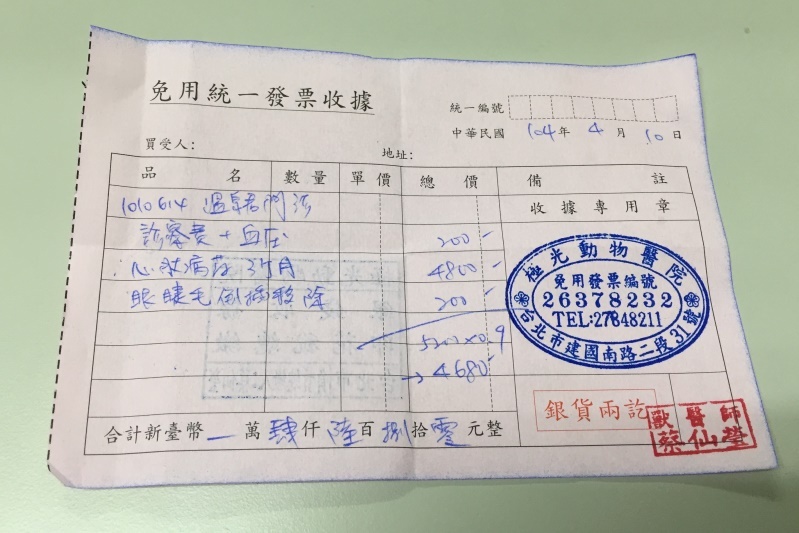 免用統一發票收據
統一編號
中華民國 104年 4月 10日
買受人：
地址：
品名 數量 單價 總價 備註
1010614 溫 門診
收據專用章
診察費+血压 200-
心臟病葯 3个月 4800-
眼睫毛倒插移除 200-
5200x0.9
→4680-
極光動物醫院
免用發票編號
26378232
TEL:27848211
台北市建國南路二段31號
銀貨兩訖
獸醫師
蔡仙瑩
合計新臺幣 — 萬 肆 仟 陸 百 捌 拾 零 元整